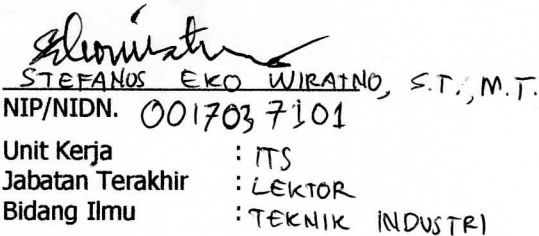 STEFANUS EKO WIRATNO, S.T., M.T.
NIP/NIDN. 0017037101
Unit Kerja : ITS
Jabatan Terakhir : LEKTOR
Bidang Ilmu : TEKNIK INDUSTRI